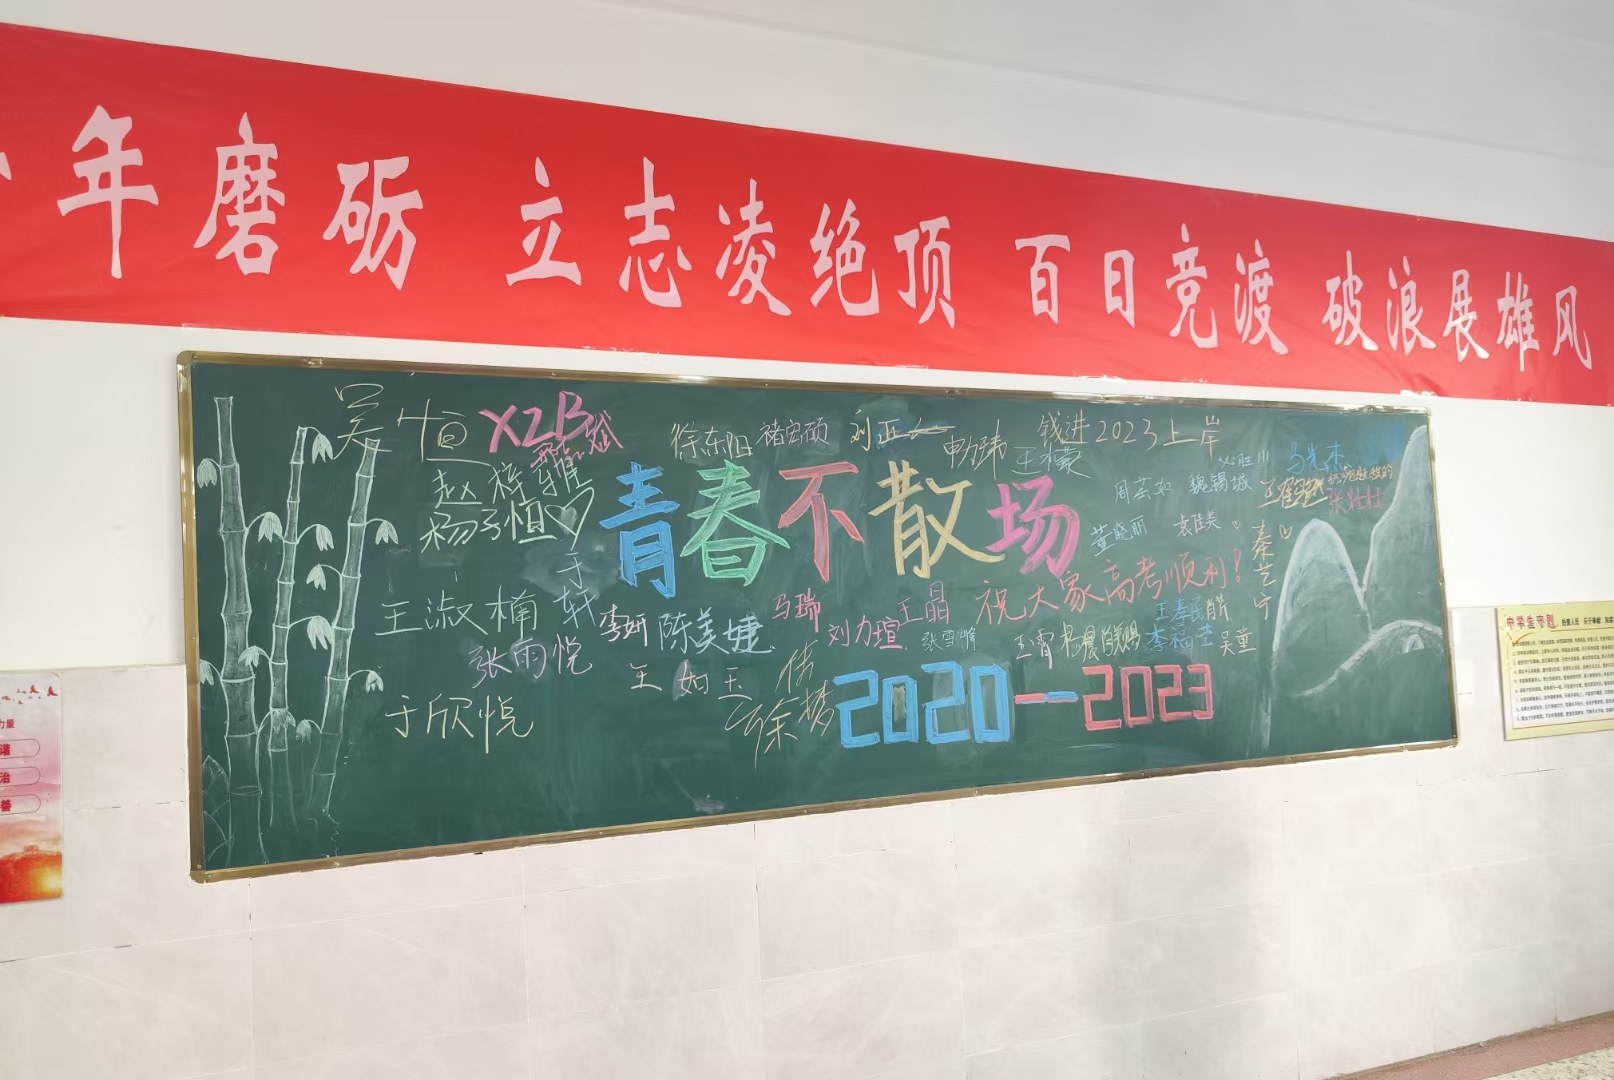 年磨砺 立志凌绝顶 百日竞渡 破浪展雄风
吴恒
XZB
徐东阳
褚宏硕
钱进2023上岸
赵梓雅
杨子恒
青春不散场
必胜!!!
马光杰
周芸如
魏锡城
张壮壮
董晓丽
袁佳美
秦艺宁
于轩
王淑楠
李妍
陈美婕
马瑞
刘力瑄
王晶
祝大家高考顺利!
张雨悦
张雪愉
王霄
王孝民
李福莹
吴童
王如玉
徐梦
于欣悦
2020—2023
中学生守则
力量
谐
治
善